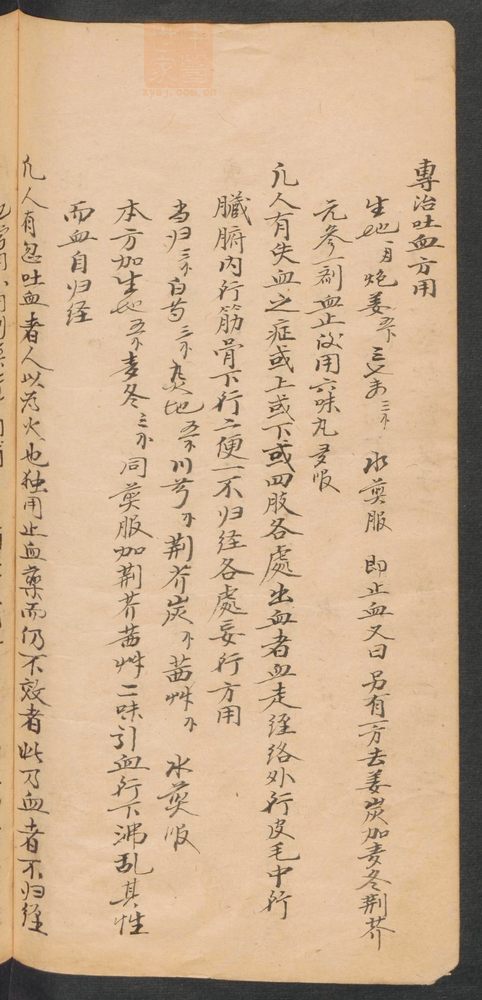 專治吐血方用
生地 炮姜 三七 水煎服 即止血又曰另有一方去姜炭加麦冬荆芥
元参一剤血止後用六味丸多服
凢人有失血之症或上或下或四肢各處出血者血走经络外行皮毛中行
臓腑内行筋骨下行二便一不归经各處妄行方用
当归三 白芍三 地 川芎 荆芥炭 茜艸 水煎服
本方加生地 麦冬三 同煎服加荆芥茜艸二味引血行下 乱其性
而血自归经
凢人有忽吐血者人以为火也独用止血薬而仍不效者此乃血者不归经